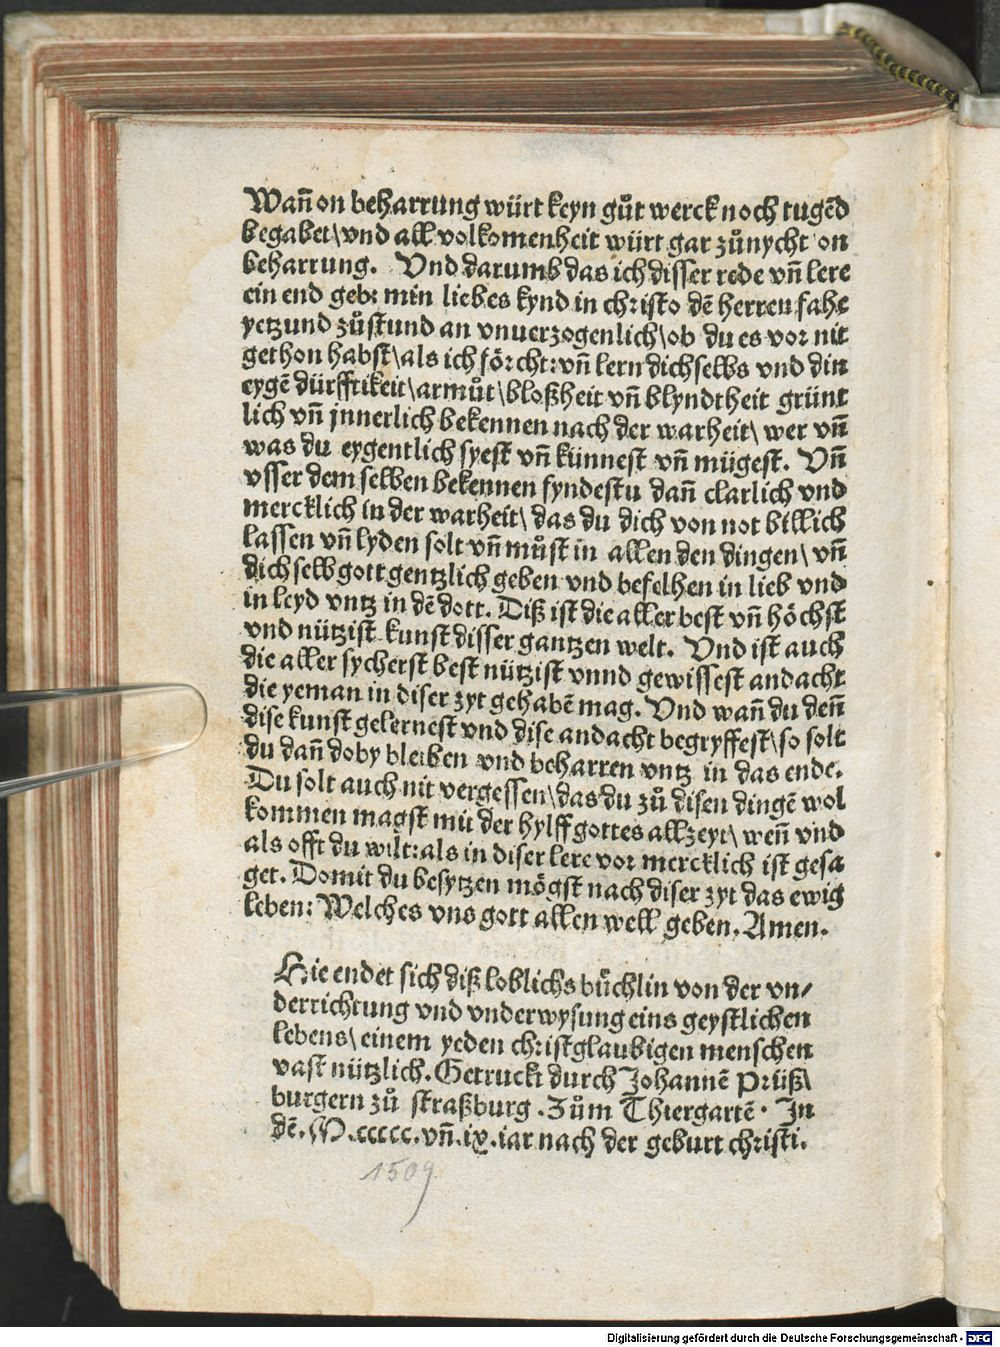 Wañ on beharrung würt keyn gůt werck noch tugēd
begabet\ vnd all volkomenheit würt gar zůnycht on
beharrung. Vnd darumb das ich disser rede vñ lere
ein end geb: min liebes kynd in christo dē herren fahe
yetzund zůstund an vnuerzogenlich\ ob du es vor nit
gethon habst\ als ich förcht: vñ lern dichselbs vnd din
eygē dürfftikeit\ armůt\ bloßheit vñ blyndtheit grünt
lich vñ jnnerlich bekennen nach der warheit\ wer vñ
was du eygentlich syest vñ künnest vñ mügest. Vñ
vsser dem selben bekennen fyndestu dañ clarlich vnd
mercklich in der warheit\ das du dich von not billich
lassen vñ lyden solt vñ můst in allen den dingen\ vñ
dich selb gott gentzlich geben vnd befelhen in lieb vnd
in leyd vntz in dē dott. Diß ist die aller best vñ höchst
vnd nützist kunst disser gantzen welt. Vnd ist auch
die aller sycherst best nützist vnnd gewissest andacht
die yeman in diser zyt gehabē mag. Vnd wañ du deñ
dise kunst gelernest vnd dise andacht begryffest\ so solt
du dañ doby bleiben vnd beharren vntz in das ende.
Du solt auch nit vergessen\ das du zů disen dingē wol
kommen magst mit der hylff gottes allzeyt\ weñ vnd
als offt du wilt: als in diser lere vor mercklich ist gesa
get. Domit du besytzen mögst nach diser zyt das ewig
leben: Welches vns gott allen well geben. Amen.

Hie endet sich diß loblichs bůchlin von der vn/
derrichtung vnd vnderwysung eins geystlichen
lebens\ einem yeden christglaubigen menschen
vast nützlich. Getruckt durch Johannē Prüß\
burgern zů straßburg. Zům Thiergartē. In
dē. M. ccccc. vñ. ix. iar nach der geburt christi.
1509
Digitalisierung gefördert durch die Deutsche Forschungsgemeinschaft - DFG